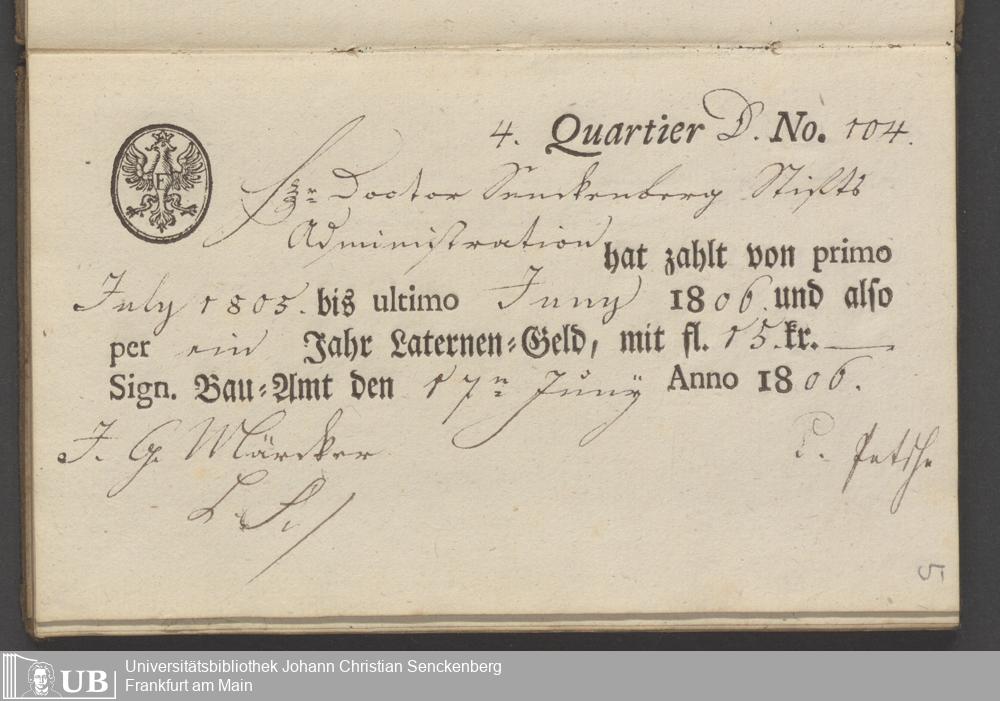 4. Quartier D. No. 104.
F
Hr: Doctor Senckenberg Stifts
Administration hat zahlt von primo
July 1805. bis ultimo Juny 1806. und also
per ein Jahr Laternen-Geld, mit fl. 15. kr. —
Sign. Bau-Amt den 17n Juny Anno 1806.
J. G. Märcker
P.
L. S.
5
UB
Universitätsbibliothek Johann Christian Senckenberg
Frankfurt am Main